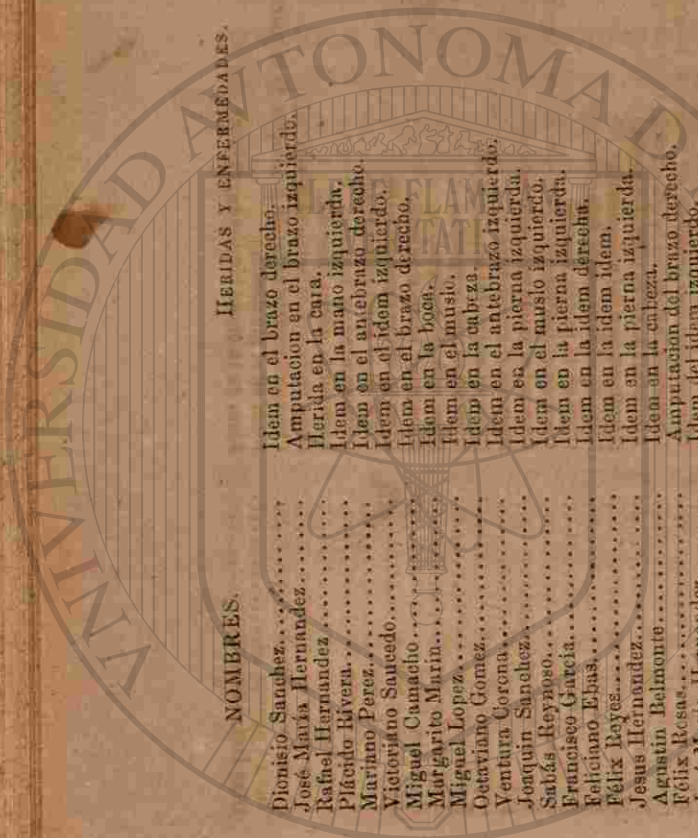 NOMBRES. HERIDAS Y ENFERMEDADES.
Dionisio Sanchez........... Idem en el brazo derecho.
José María Hernandez........... Amputacion en el brazo izquierdo.
Rafael Hernandez........... Herida en la cara.
Plácido Rivera........... Idem en la mano izquierda.
Mariano Perez........... Idem en el antebrazo derecho.
Victoriano Saucedo........... Idem en el idem izquierdo.
Miguel Camacho........... Idem en el brazo derecho.
Margarito Marin........... Idem en la boca.
Miguel Lopez........... Idem en el muslo.
Octaviano Gomez........... Idem en la cabeza.
Ventura Corona........... Idem en el antebrazo izquierdo.
Joaquin Sanchez........... Idem en la pierna izquierda.
Sabás Reynoso........... Idem en el muslo izquierdo.
Francisco García........... Idem en la pierna izquierda.
Feliciano Ebas........... Idem en la idem derecha.
Félix Reyes........... Idem en la idem idem.
Jesus Hernandez........... Idem en la pierna izquierda.
Agustin Belmonte........... Idem en la cabeza.
Félix Rosas........... Amputacion del brazo derecho.
José María Hernandez........... Idem del idem izquierdo.